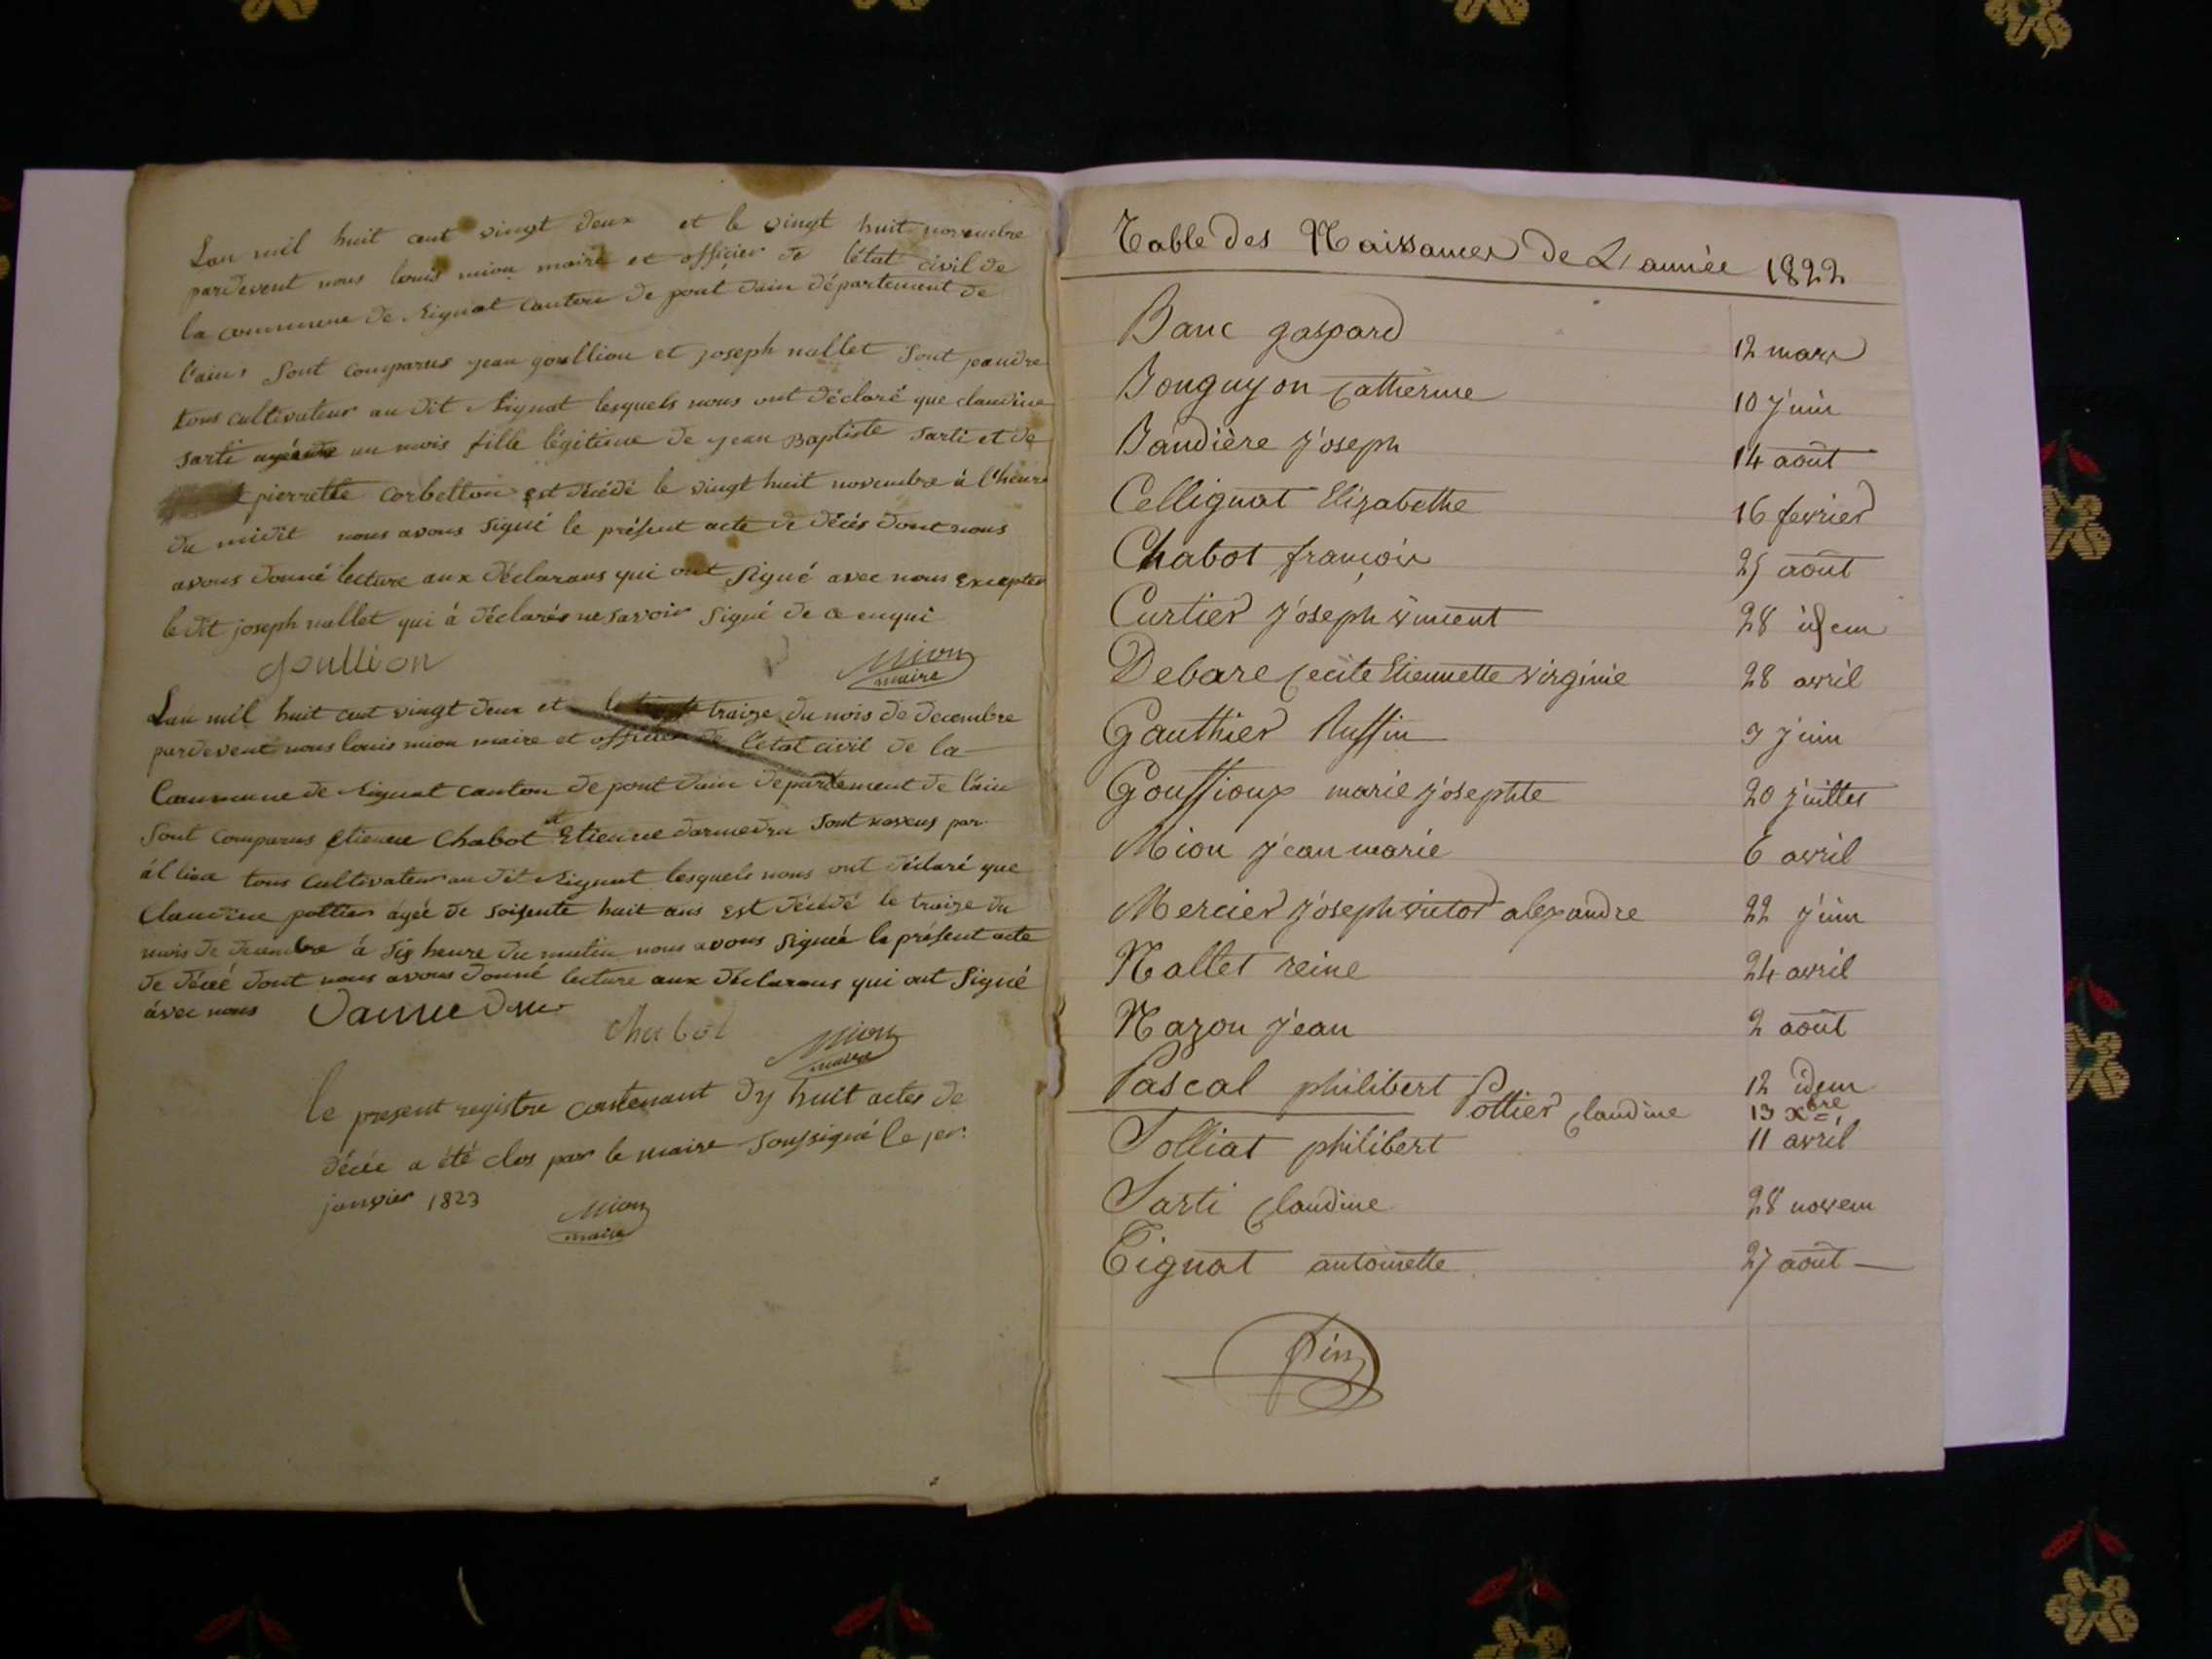 Lan mil huit cent vingt deux et le vingt huit novembre
pardevent nous louis mion maire et officier de létat civil de
la commune de Rignat canton de pont dain département de
l'ain, sont comparus jean goullion et joseph nallet sont jeandre
tous cultivateur au dit Rignat lesquels nous ont déclaré que claudine
sarti agée de un mois fille légitime de jean Baptiste sarti et de
pierrette corbetton est décédé le vingt huit novembre à l'heure
du midit nous avons signé le présent acte de décés dont nous
avons donné lecture aux déclarans qui ont signé avec nous excepter
le dit joseph nallet qui à déclarés ne savoir signé de ce enqui
goullion
Mion
maire
Lan mil huit cent vingt deux et le traize du mois de decembre
pardevent nous louis mion maire et officier de l'état civil de la
Commune de Rignat canton de pont dain département de l'ain
sont comparus Etienne Chabot et Etienne darmedru sont par
tous cultivateur au dit Rignat lesquels nous ont déclaré que
Claudine pottier agée de soisente huit ans est décédé le traize du
mois de decembre à six heure du matin nous avons signée le présent acte
de décé dont nous avons donné lecture aux déclarans qui ont signé
avec nous
Chabot
Mion
maire
le present registre contenant dy huit actes de
décée a été clos par le maire soussigné le jer.
janvier 1823
Mion
maire
Table des Naissances de L'année 1822
Banc gaspard 12 mars
Bonguyon Catherine 10 juin
Baudière joseph 14 août
Cellignat Elizabethe 16 fevrier
Chabot françois 25 août
Curtier joseph vincent 28 idem
Debare Cecile Etiennette virginie 28 avril
Gauthier Ruffin 9 juin
Gouffioux marie josephte 20 juillet
Mion jean marie 6 avril
Mercier joseph victor alexandre 22 juin
Nallet reine 24 avril
Nazon jean 2 août
Pascal philibert 12 idem
Pottier Claudine 13 xbre
Solliat philibert 11 avril
Sarti Claudine 28 novem
Tignat antoinette 27 août
fin